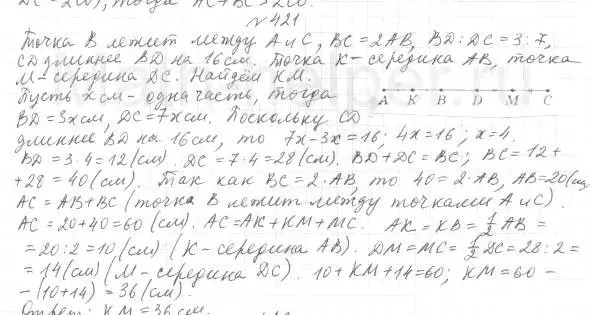 DC = 2CD), тогда AC+BC > 2CD.
№ 421
Точка B лежит между A и C, BC = 2AB, BD : DC = 3 : 7,
CD длиннее BD на 16 см. Точка K - середина AB, точка
M - середина DC. Найдём KM.
Пусть x см - одна часть, тогда
A K B D M C
BD = 3x см, DC = 7x см. Поскольку CD
длиннее BD на 16 см, то 7x - 3x = 16; 4x = 16; x = 4.
BD = 3 · 4 = 12 (см). DC = 7 · 4 = 28 (см). BD + DC = BC; BC = 12 +
+ 28 = 40 (см). Так как BC = 2 · AB, то 40 = 2 · AB, AB = 20 (см)
AC = AB + BC (точка B лежит между точками A и C).
AC = 20 + 40 = 60 (см). AC = AK + KM + MC. AK = KB = 1/2 AB =
= 20 : 2 = 10 (см) (K - середина AB). DM = MC = 1/2 DC = 28 : 2 =
= 14 (см) (M - середина DC). 10 + KM + 14 = 60; KM = 60 -
- (10 + 14) = 36 (см).
Ответ: KM = 36 см.